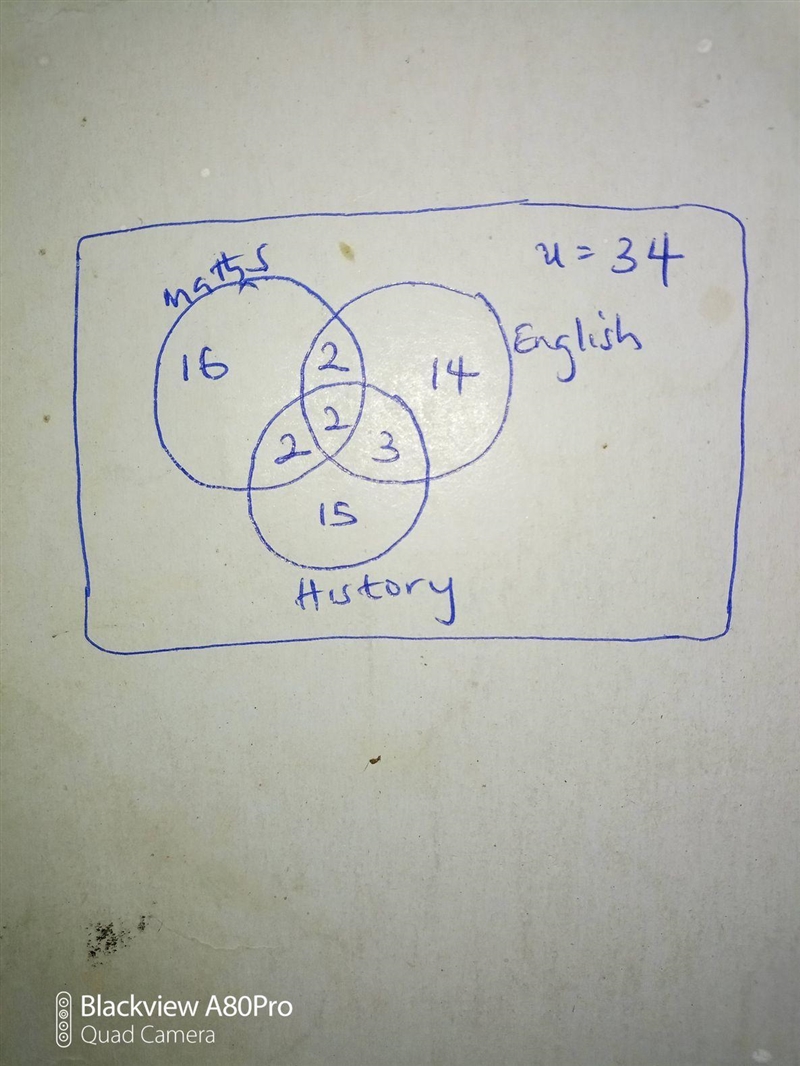 u = 34
Maths
English
16
2
14
2
2
3
15
History
Blackview A80Pro
Quad Camera